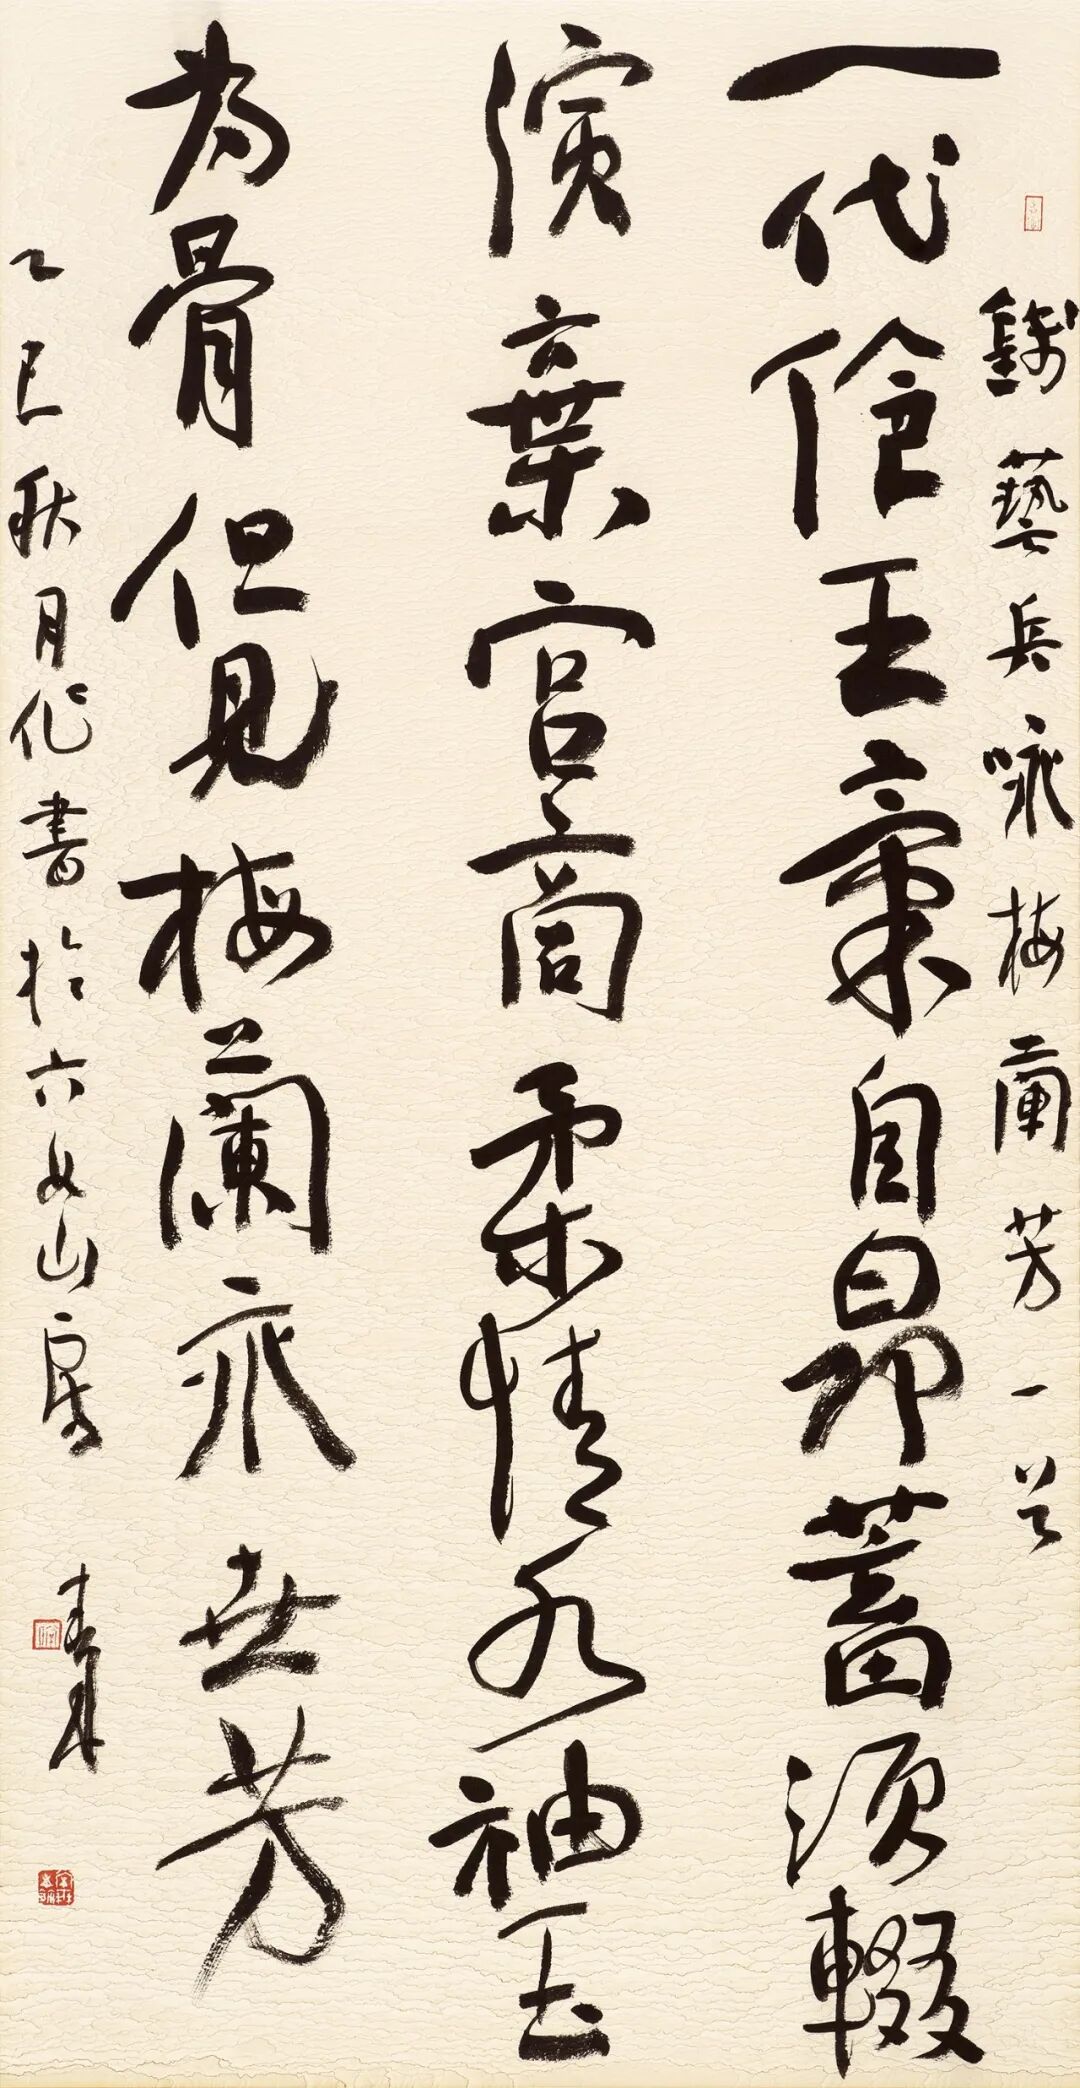 錢藝兵咏梅蘭芳一首
一代伶王氣自昂蓄須輟
演棄宮商柔情水袖玉
為骨但見梅蘭永世芳
乙巳秋月作書於六如山房